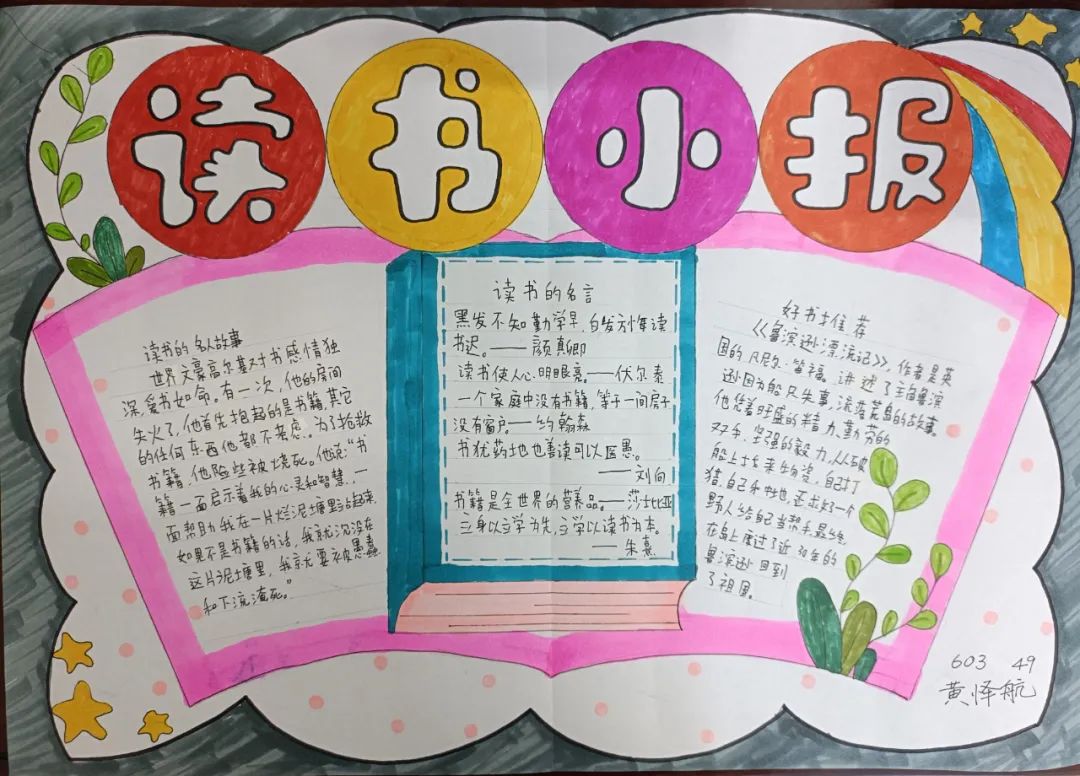 读书小报
读书的名人故事
世界文豪高尔基对书感情独
深,爱书如命,有一次,他的房间
失火了,他首先抱起的是书籍,其它
的任何东西他都不考虑。为了抢救
书籍,他险些被烧死。他说:“书
籍一面启示着我的心灵和智慧,一
面帮助我在一片烂泥塘里站起来,
如果不是书籍的话,我就沉没在
这片泥塘里,我就要被愚蠢
和下流淹死。”
读书的名言
黑发不知勤学早,白发方悔读
书迟。——颜真卿
读书使人心明眼亮。——伏尔泰
一个家庭中没有书籍,等于一间房子
没有窗户。——约翰森
书犹药也善读可以医愚。
——刘向
书籍是全世界的营养品。——莎士比亚
立身以立学为先,立学以读书为本。
——朱熹
好书推荐
《鲁滨逊漂流记》,作者是英
国的凡尼尔·笛福。讲述了主角鲁滨
逊因为船只失事,流落荒岛的故事。
他凭着旺盛的精力、勤劳的
双手、坚强的毅力,从破
船上找来物资,自己打
猎,自己种地,还求了一个
野人给自己当帮手,最终
在岛上度过了近30年的
鲁滨逊回到
了祖国。
603 49
黄怿航